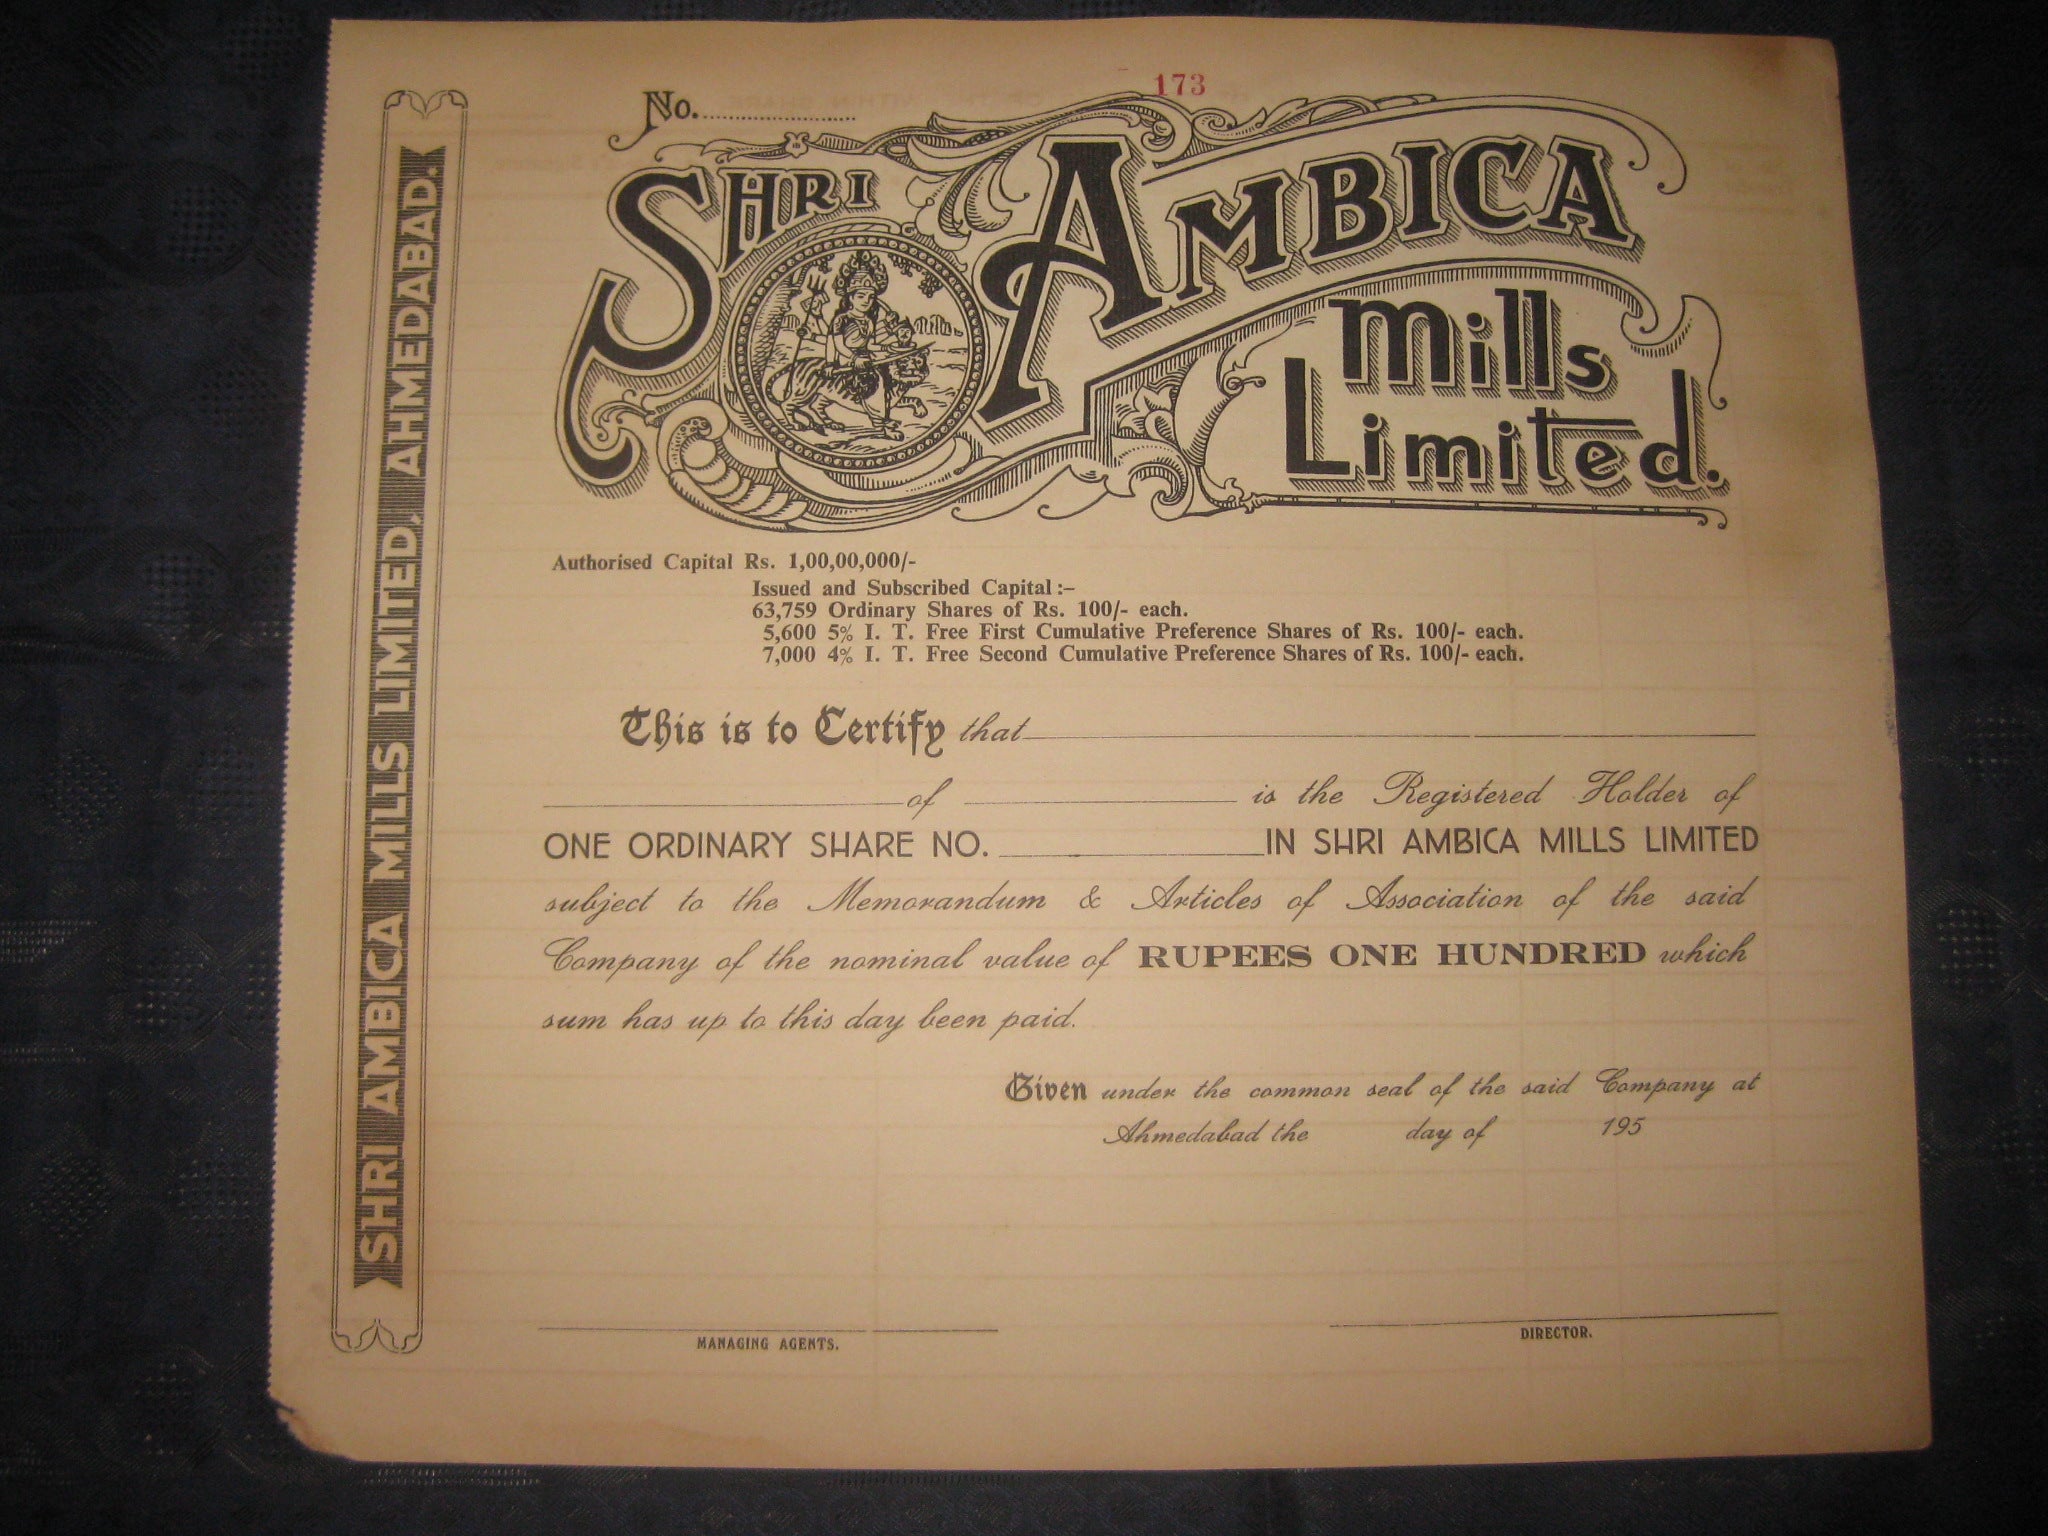 173
No.
SHRI AMBICA
Mills
Limited.
SHRI AMBICA MILLS LIMITED. AHMEDABAD.
Authorised Capital Rs. 1,00,00,000/-
Issued and Subscribed Capital :-
63,759 Ordinary Shares of Rs. 100/- each.
5,600 5% I. T. Free First Cumulative Preference Shares of Rs. 100/- each.
7,000 4% I. T. Free Second Cumulative Preference Shares of Rs. 100/- each.
This is to Certify that
of is the Registered Holder of
ONE ORDINARY SHARE NO. IN SHRI AMBICA MILLS LIMITED
subject to the Memorandum & Articles of Association of the said
Company of the nominal value of RUPEES ONE HUNDRED which
sum has up to this day been paid.
Given under the common seal of the said Company at
Ahmedabad the day of 195
MANAGING AGENTS.
DIRECTOR.